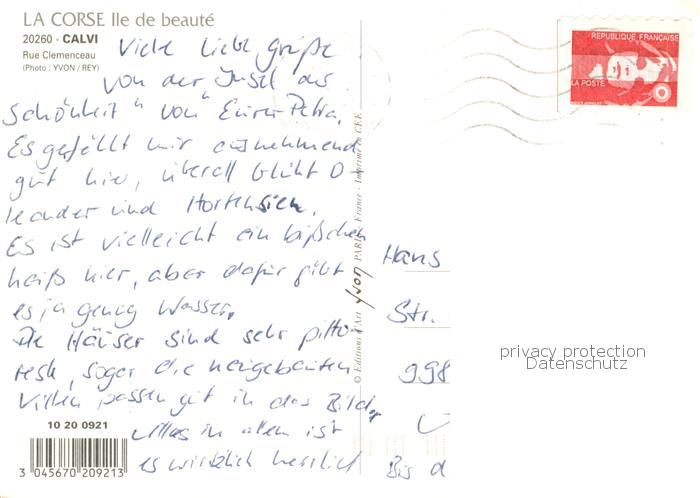 LA CORSE Ile de beauté
20260 - CALVI
Rue Clemenceau
(Photo : YVON / REY)
Viele liebe Grüße
von der „Insel der
Schönheit" von Eurer Petra.
Es gefällt mir ausnehmend
gut hier, überall blüht O-
leander und Hortensien.
Es ist vielleicht ein bißchen
heiß hier, aber dafür gibt
es ja genug Wasser.
Die Häuser sind sehr pitto-
resk, sogar die neugebauten
Villen passen gut in das Bild.
Alles in allem ist
es wirklich herrlich
10 20 0921
3 045670 209213
© Editions d'Art yvon PARIS France - Imprimé en CEE
REPUBLIQUE FRANÇAISE
LA POSTE
Hans
Str.
998
Bis d
privacy protection
Datenschutz